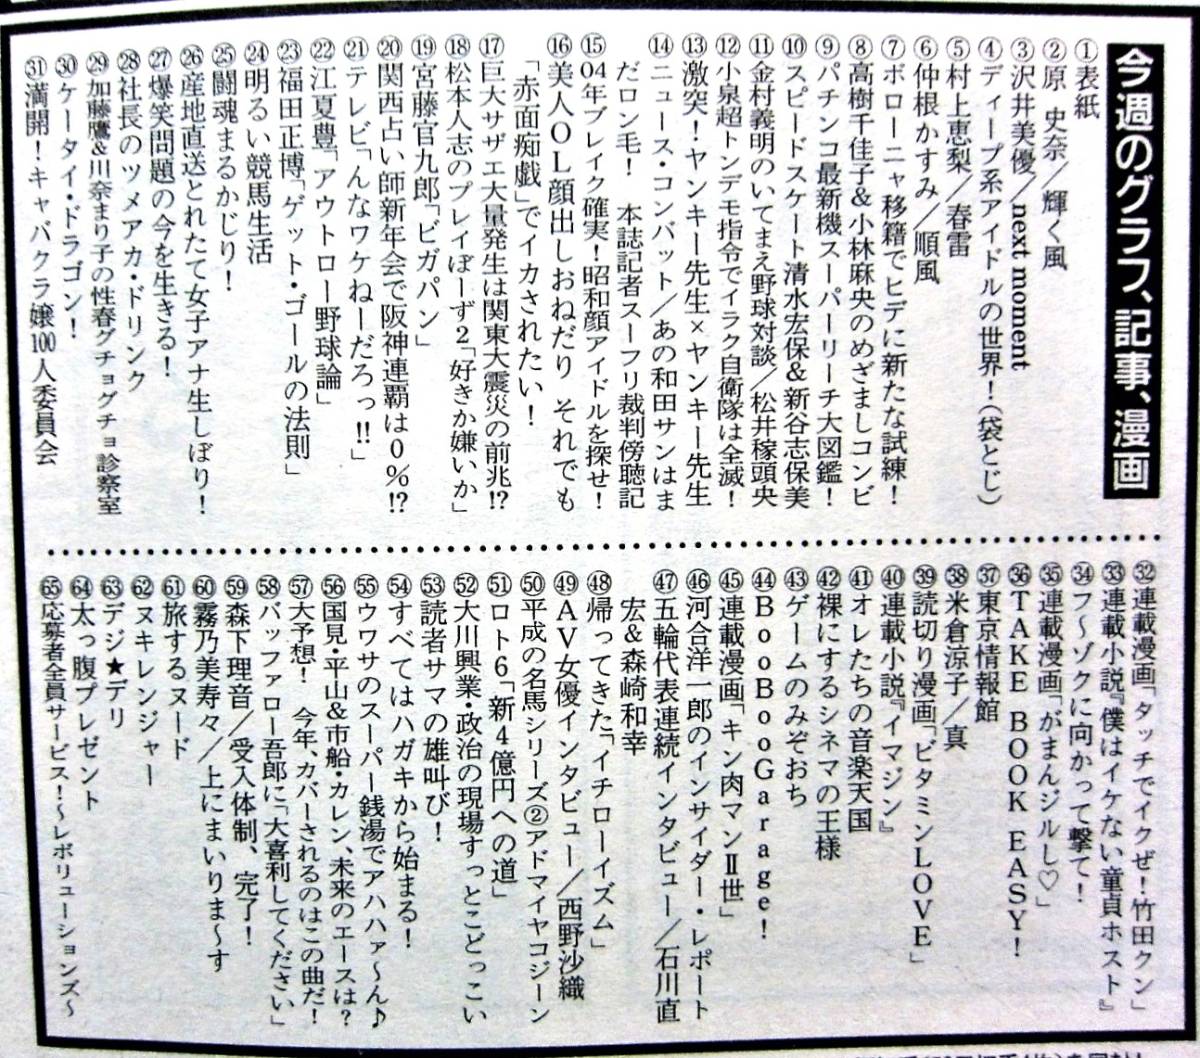 今週のグラフ、記事、漫画
①表紙
②原 史奈／輝く風
③沢井美優／next moment
④ディープ系アイドルの世界！（袋とじ）
⑤村上恵梨／春雷
⑥仲根かすみ／順風
⑦ボローニャ移籍でヒデに新たな試練！
⑧高樹千佳子＆小林麻央のめざましコンビ
⑨パチンコ最新機スーパーリーチ大図鑑！
⑩スピードスケート清水宏保＆新谷志保美
⑪金村義明のいてまえ野球対談／松井稼頭央
⑫小泉超トンデモ指令でイラク自衛隊は全滅！
⑬激突！ヤンキー先生×ヤンキー先生
⑭ニュース・コンバット／あの和田サンはま
だロン毛！ 本誌記者スーフリ裁判傍聴記
⑮04年ブレイク確実！昭和顔アイドルを探せ！
⑯美人OL顔出しおねだり それでも
「赤面痴戯」でイカされたい！
⑰巨大サザエ大量発生は関東大震災の前兆!?
⑱松本人志のプレイぼーず2「好きか嫌いか」
⑲宮藤官九郎「ビガパン」
⑳関西占い師新年会で阪神連覇は0％!?
㉑テレビ「んなワケねーだろっ!!」
㉒江夏豊「アウトロー野球論」
㉓福田正博「ゲット・ゴールの法則」
㉔明るい競馬生活
㉕闘魂まるかじり！
㉖産地直送とれたて女子アナ生しぼり！
㉗爆笑問題の今を生きる！
㉘社長のツメアカ・ドリンク
㉙加藤鷹＆川奈まり子の性春グチョグチョ診察室
㉚ケータイ・ドラゴン！
㉛満開！キャバクラ嬢100人委員会
㉜連載漫画「タッチでイクぜ！竹田クン」
㉝連載小説『僕はイケない童貞ホスト』
㉞フ〜ゾクに向かって撃て！
㉟連載漫画「がまんジルし♡」
㊱TAKE BOOK EASY！
㊲東京情報館
㊳米倉涼子／真
㊴読切り漫画「ビタミンLOVE」
㊵連載小説『イマジン』
㊶オレたちの音楽天国
㊷裸にするシネマの王様
㊸ゲームのみぞおち
㊹BooBooGarage！
㊺連載漫画「キン肉マンⅡ世」
㊻河合洋一郎のインサイダー・レポート
㊼五輪代表連続インタビュー／石川直
宏＆森崎和幸
㊽帰ってきた「イチローイズム」
㊾AV女優インタビュー／西野沙織
㊿平成の名馬シリーズ②アドマイヤコジーン
51ロト6「新4億円への道」
52大川興業・政治の現場すっとこどっこい
53読者サマの雄叫び！
54すべてはハガキから始まる！
55ウワサのスーパー銭湯でアハハァ〜ん♪
56国見・平山＆市船・カレン、未来のエースは？
57大予想！ 今年、カバーされるのはこの曲だ！
58バッファロー吾郎に「大喜利してください」
59森下理音／受入体制、完了！
60霧乃美寿々／上にまいりま〜す
61旅するヌード
62ヌキレンジャー
63デジ★デリ
64太っ腹プレゼント
65応募者全員サービス！〜レボリューションズ〜